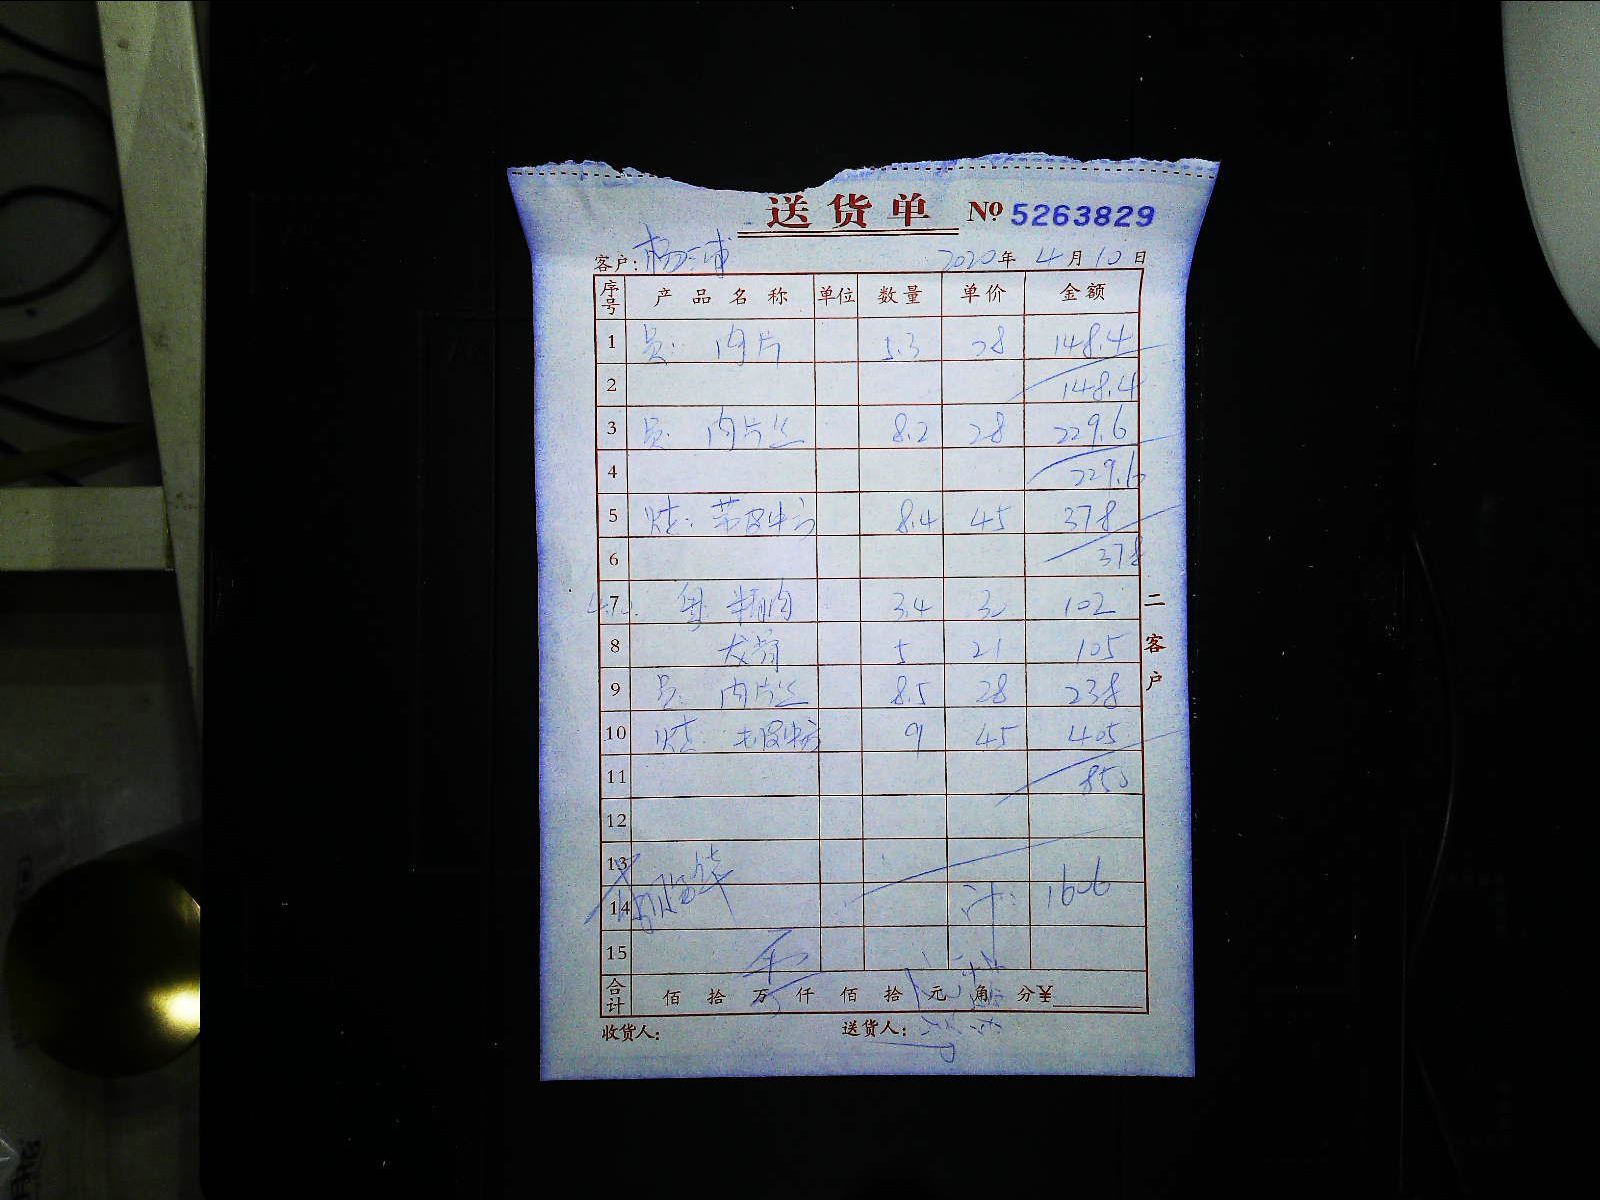 送货单 № 5263829
客户: 杨 2020年 4月10日
序号 产品名称 单位 数量 单价 金额
1 员: 肉片 5.3 28 148.4
2 148.4
3 员: 肉片丝 8.2 28 229.6
4 229.6
5 烧: 带皮 8.4 45 378
6 378
7 精肉 3.4 30 102
8 5 21 105
9 员: 肉片丝 8.5 28 238
10 烧: 9 45 405
11 850
12
13
14 计: 1606
15
合计 佰 拾 万 仟 佰 拾 元 角 分 ¥
收货人: 送货人:
二 客户